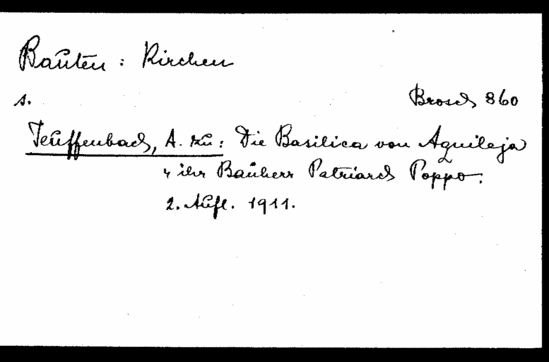 Bauten : Kirchen
s. Brosch 860
Teuffenbach, A. zu : Die Basilica von Aquileja
u ihr Bauherr Patriarch Poppo.
2. Aufl. 1911.